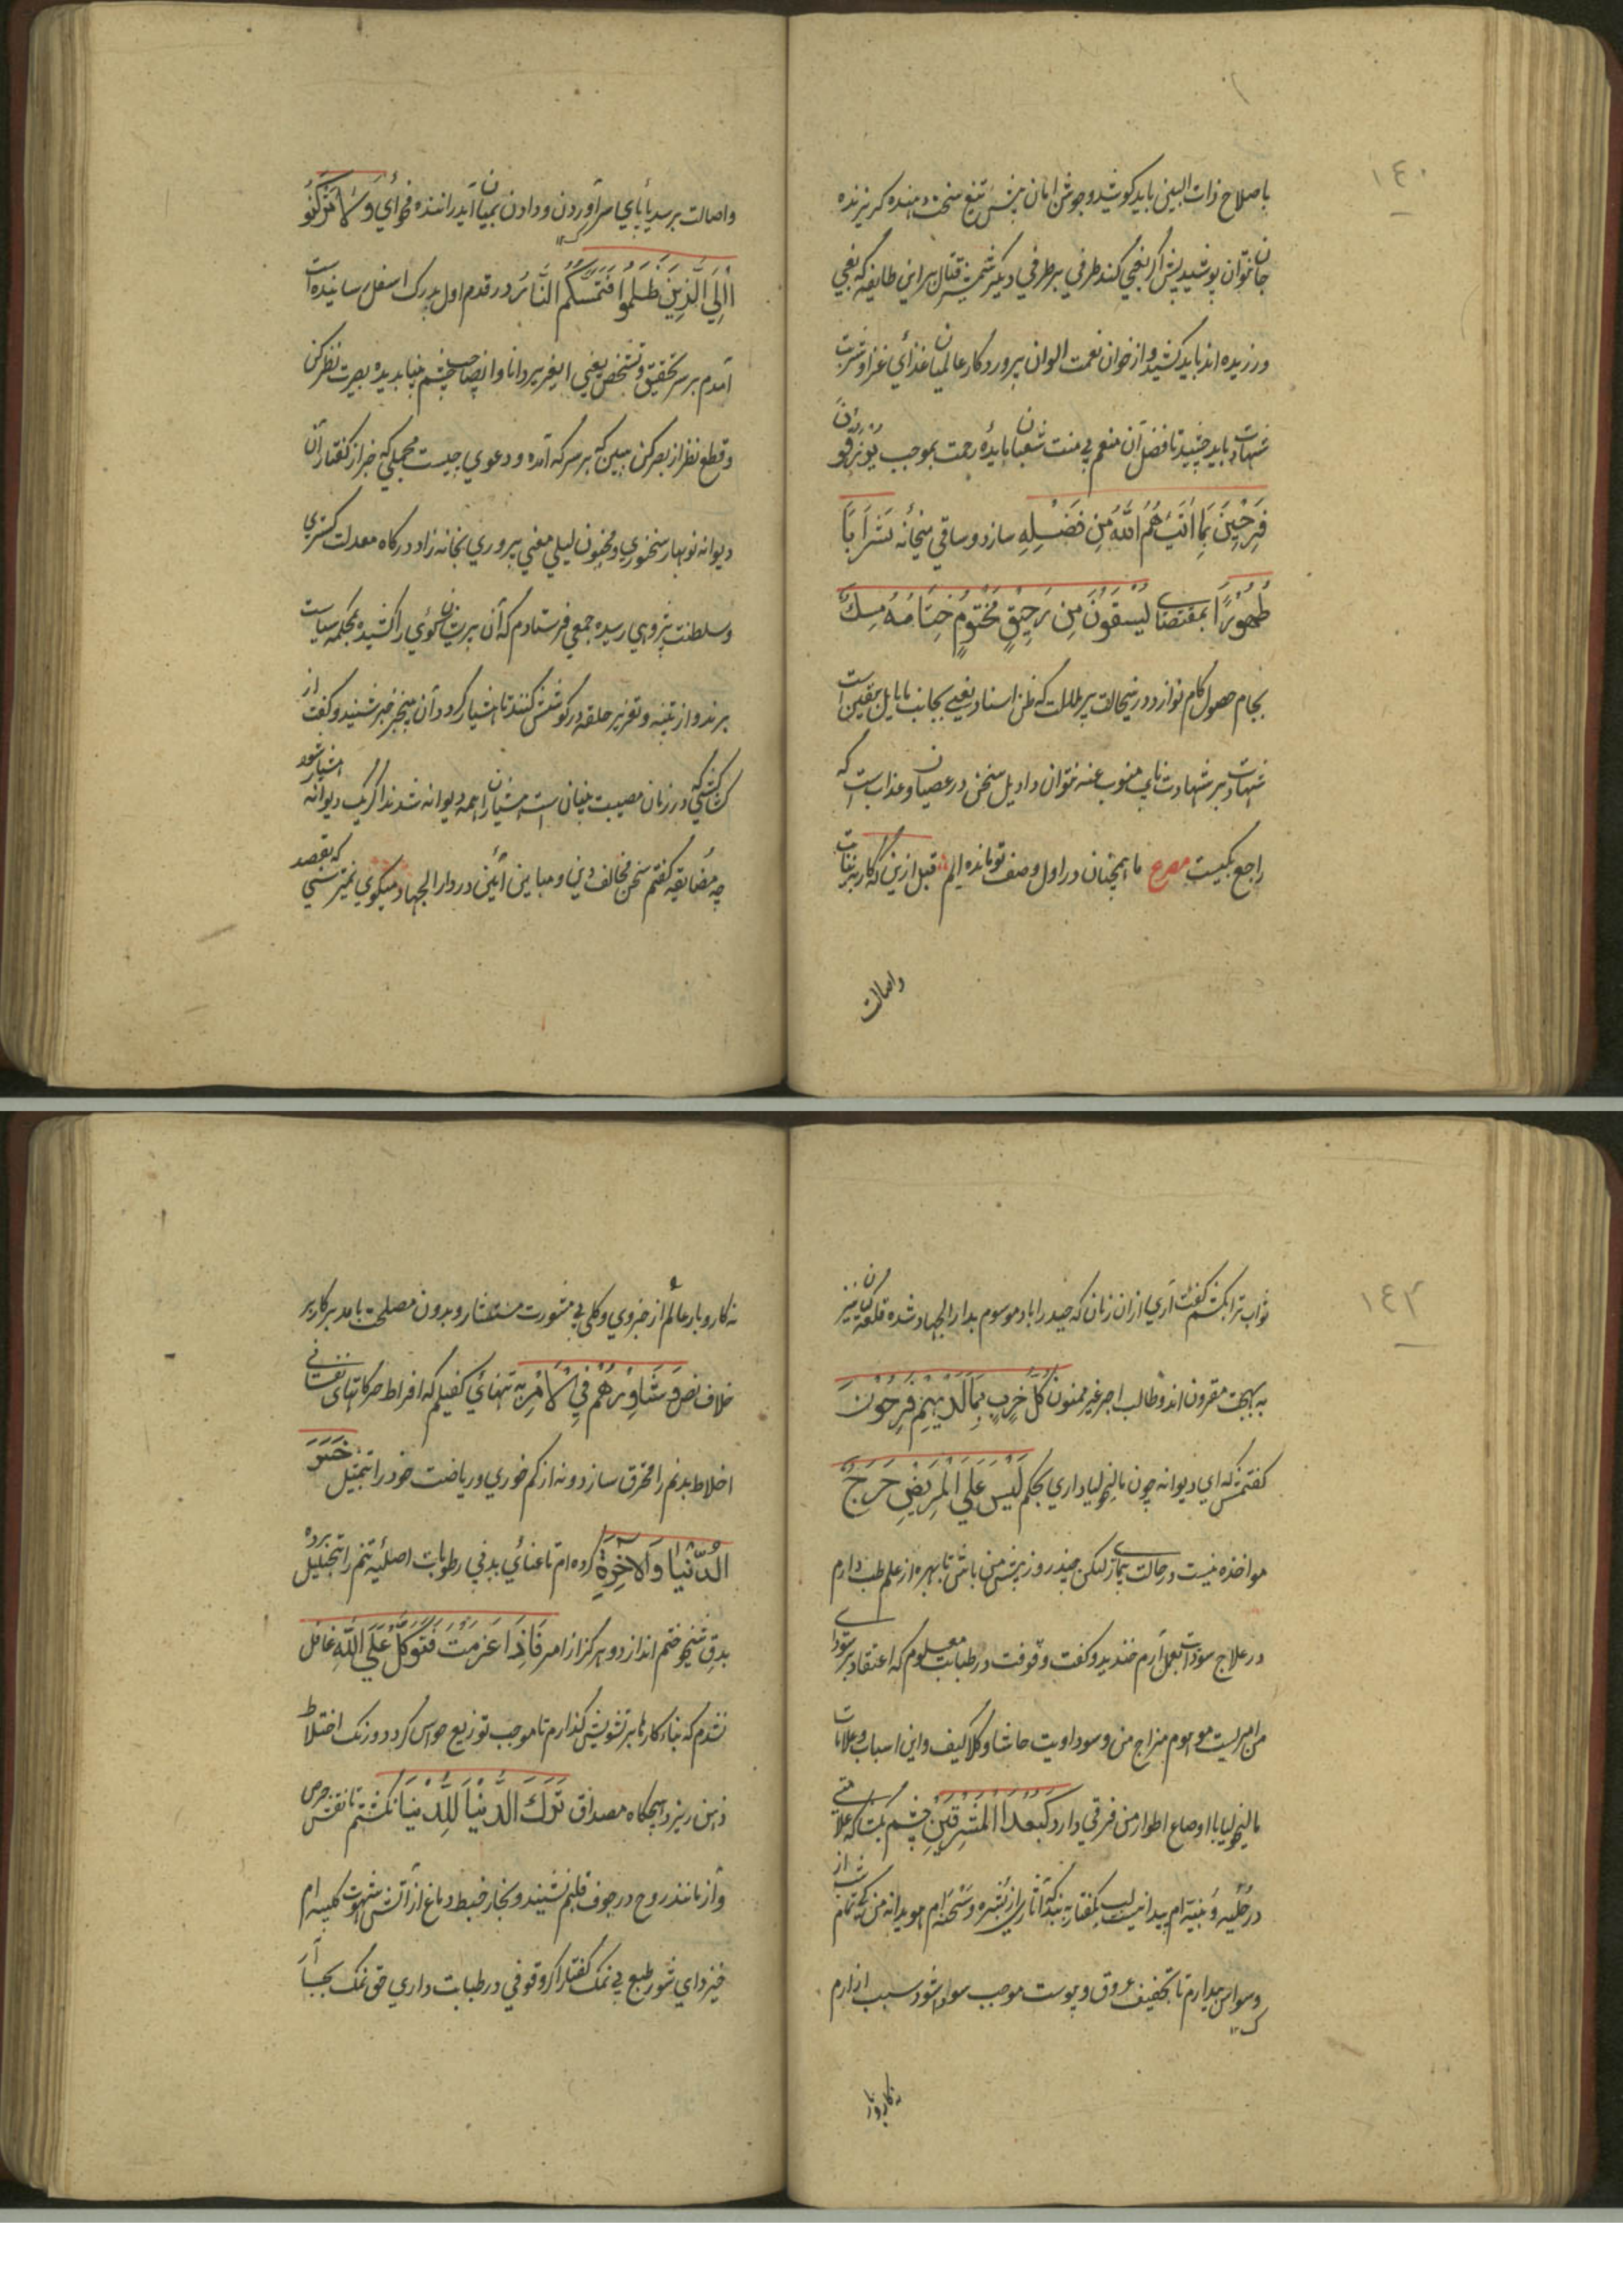 ١٤٠
باصلاح ذات البین باید کوشید و جوشن امان پیش تیغ منت دهنده کریزنده
جان نتوان پوشید پیش اگر بغی کند طرفی بر طرفی دیگر شمشیر قتال بر این طایفه که بغی
ورزیده اند باید کشید و از خوان نعمت الوان پروردکار عالمیان غذای غزا و شربت
شهادت باید چشید تا فضل آن منعم بی منت شعبان بایده رحمت بموجب یُوْزَقُونَ
فَرِحِیْنَ بِمَا اٰتٰیهُمُ اللّٰهُ مِنْ فَضْلِهِ سازد و ساقی میخانه شَرَابًا
طَهُوْرًا بمقتضای یُسْقَوْنَ مِن رَحِیْقٍ مَخْتُوْمٍ خِتَامُهُ مِسْكٌ
بجام حصول کام نوازد درینحالت پر ملالت که ظن اسناد بغی بجانب یقین است
شهادت بر شهادت نایب منوب عنه نتوان داد دلیل سخن در عصیان و عذاب است که
راجع بکیست مصرع ما همچنان در اول وصف تو مانده ایم قبل ازین که کار بر ثقات
واصالت
واصالت برسد پای سر آوردن و دادن بمیان آید راننده فحوای وَلَا تَرْكَنُوْ
اِلَی الَّذِیْنَ ظَلَمُوْا فَتَمَسَّكُمُ النَّار در قدم اول بدرک اسفل رسانیده است
آمدم بر سر تحقیق و تشخص بغی ایفقیر دانا و انصاحب چشم بینا بدیده بصیرت نظر کن
و قطع نظر از بصر کن ببین که بر سر که آمده و دعوی چیست مجملی که خبر از کفتار آن
دیوانه نوبهار سخنوری و مجنون لیلی معنی پروری بخانه زاد درکاه معدلت کستری
و سلطنت پژوهی رسیده جمعی فرستادم که آن پریشان کوئی را کشیده بمحکمه سیاست
برند و از تنبیه و تعزیر حلقه در کوشش کنند تا هشیار کردد آن بیخبر خبر شنید و کفت از
کشتکی که در زمان مصیبت بنیان است هشیاران همه دیوانه شدند اگر یک دیوانه هشیار شود
چه مضایقه کفتم سخن مخالف دین و مباین آئین در دار الجهاد میکوی نمیترسی که بقصد
١٤٢
ثواب ترا بکشم کفت آری ازان زمان که حیدراباد موسوم بدار الجهاد شده قلعکیان نیز
به بهجت مقرون اند و طالب اجر غیر ممنون كُلُّ حِزْبٍ بِمَا لَدَیْهِمْ فَرِحُوْنَ
کفتمش که ای دیوانه چون مالیخولیا داری بحکم لَیْسَ عَلَی الْمَرِیْضِ حَرَجٌ
مواخذه نیست در حالت بیماری لیکن چند روز پیش من باش تا بهره از علم طب دارم
در علاج سودات بعمل آرم خندید و کفت وقوفت در طبابت معلوم که اعتقاد بر سودای
من امریست موهوم مزاج من و سوداویت حاشا و کلا کیف و این اسباب و علامات
مالیخولیا با اوضاع و اطوار من فرقی دارد كَبُعْدَ الْمَشْرِقَیْنِ چشم بکشا که علامتی
در حلیه و بنیه ام پیدا نیست لب بکفتار به بند که آثاری از بشره و سحنه ام هویدا نه من که شب تمام
وسواس بیدارم تا تجفیف عروق و پوست موجب سوداشود سبب ازارم
نه کاروبار
نه کاروبار عالم از جزوی و کلی بی مشورت مستشار و بدون مصلحت با مدبر کار بر
خلاف نص وَ شَاوِرْهُمْ فِی الْاَمْرِ به تنهائی کفیلم که افراط حرکاتهای نفسانی
اخلاط بدنم را محرق سازد و نه از کم خوری و ریاضت خود را بتمثیل خَسِرَ
الدُّنْیَا وَالْاٰخِرَةِ کرده ام تا عنای بدنی رطوبات اصلیه تنم را بتحلیل برده
بدق شیخوختم اندازد و هرکز از امر فَاِذَا عَزَمْتَ فَتَوَكَّلْ عَلَی اللّٰهِ غافل
نشدم که بناء کارها بر تشویش کذارم تا موجب توزیع حواس کردد و رنک اختلاط
ذهن ریزد هیچکاه مصداق تَرَكَ الدُّنْیَا لِلدُّنْیَا نکشتم تا نقش حرص
و آز مانند روح در جوف قلبم نشیند و بخار خبط دماغ از آتش شهوت کلیه ام
خیزد ای شور طبع بی نمک کفتار اگر وقوفی در طبابت داری حق نمک بجا آر